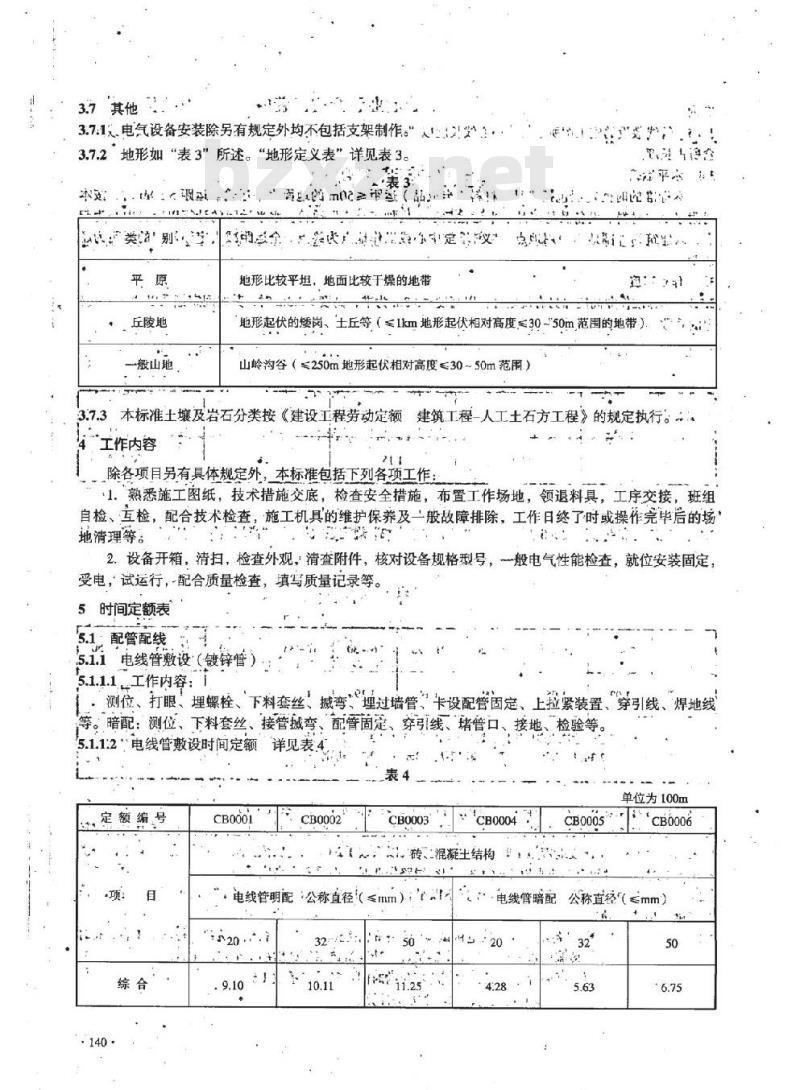 3.7 其他
3.7.1 电气设备安装除另有规定外均不包括支架制作。
3.7.2 地形如“表 3”所述。“地形定义表”详见表 3。
bzxz.net
表 3
类 别 定 义
平 原 地形比较平坦，地面比较干燥的地带
丘陵地 地形起伏的矮岗、土丘等（≤1km 地形起伏相对高度≤30~50m 范围的地带）
一般山地 山岭沟谷（≤250m 地形起伏相对高度≤30~50m 范围）
3.7.3 本标准土壤及岩石分类按《建设工程劳动定额 建筑工程-人工土石方工程》的规定执行。
4 工作内容
除各项目另有具体规定外，本标准包括下列各项工作：
1. 熟悉施工图纸，技术措施交底，检查安全措施，布置工作场地，领退料具，工序交接，班组
自检、互检，配合技术检查，施工机具的维护保养及一般故障排除，工作日终了时或操作完毕后的场
地清理等。
2. 设备开箱，清扫，检查外观，清查附件，核对设备规格型号，一般电气性能检查，就位安装固定，
受电，试运行，配合质量检查，填写质量记录等。
5 时间定额表
5.1 配管配线
5.1.1 电线管敷设（镀锌管）
5.1.1.1 工作内容：
测位、打眼、埋螺栓、下料套丝、揻弯、埋过墙管、卡设配管固定、上拉紧装置、穿引线、焊地线
等。暗配：测位、下料套丝、接管揻弯、配管固定、穿引线、堵管口、接地、检验等。
5.1.1.2 电线管敷设时间定额 详见表 4
表 4
单位为 100m
定 额 编 号 CB0001 CB0002 CB0003 CB0004 CB0005 CB0006
砖、混凝土结构
项 目 电线管明配 公称直径（≤mm） 电线管暗配 公称直径（≤mm）
20 32 50 20 32 50
综 合 9.10 10.11 11.25 4.28 5.63 6.75
· 140 ·